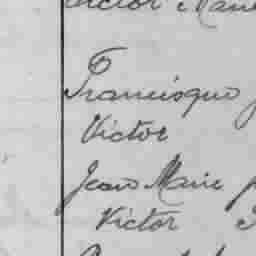 Victor Marie
Francisque
Victor
Jean Marie
Victor